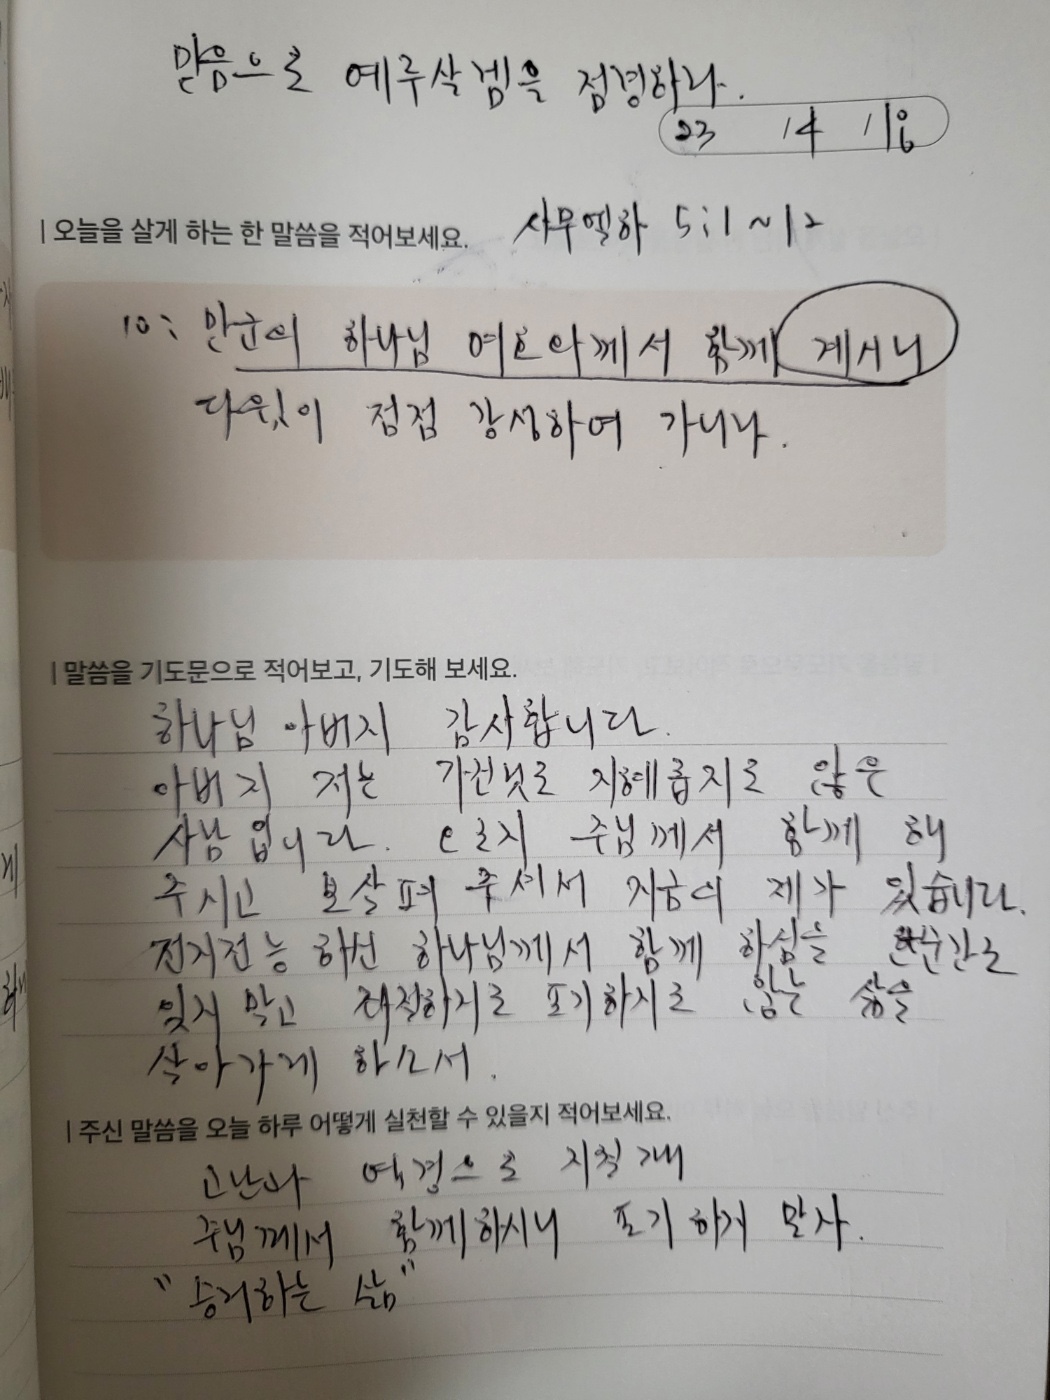 믿음으로 예루살렘을 점령하라.
23 14 116
| 오늘을 살게 하는 한 말씀을 적어보세요. 사무엘하 5:1~12
10: 만군의 하나님 여호와께서 함께 계시니
다윗이 점점 강성하여 가니라.
| 말씀을 기도문으로 적어보고, 기도해 보세요.
하나님 아버지 감사합니다.
아버지 저는 지혜롭지도 않은
사람입니다. 오로지 주님께서 함께 해
주시고 보살펴 주셔서 지금의 제가 있습니다.
전지전능하신 하나님께서 함께 하심을 한순간도
잊지 말고 좌절하지도 포기하지도 않는 삶을
살아가게 하소서.
| 주신 말씀을 오늘 하루 어떻게 실천할 수 있을지 적어보세요.
고난과 역경으로 지칠 때
주님께서 함께하시니 포기하지 말자.
"승리하는 삶"